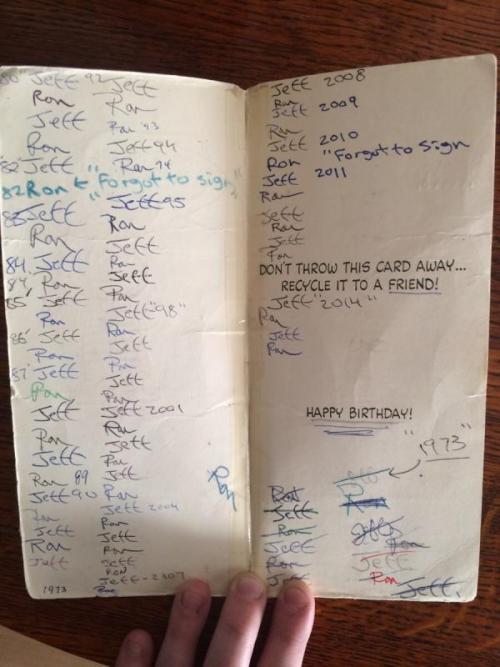 80" Jeff 92 Jeff
Ron Ron
Jeff Ron '93
Ron Jeff 94
'82 Jeff Ron 94
82 Ron "Forgot to sign"
83 Jeff Jeff 95
Ron Ron
Jeff
84. Jeff Ron
84, Ron Jeff
85' Jeff Ron
Ron Jeff "98"
86' Jeff Ron
Jeff
Ron Ron
87' Jeff Jeff
Ron Ron
Jeff Jeff 2001
Ron Ron
Jeff
Jeff Ron
Ron 89 Jeff
Jeff 90 Ron
Ron Jeff 2004
Jeff Ron
Jeff
Ron Ron
Jeff Jeff
RON
Jeff - 2007
1973 Ron
Ron
Jeff 2008
Ron
Jeff 2009
Ron
Jeff 2010
Ron "Forgot to sign
Jeff 2011
Ron
Jeff
Ron
Jeff
Ron
DON'T THROW THIS CARD AWAY...
RECYCLE IT TO A FRIEND!
Jeff "2014"
Ron
Jeff
Ron
HAPPY BIRTHDAY!
"1973"
Jeff
Ron Ron
Jeff
Ron Jeff
Jeff Ron
Ron Jeff
Jeff Ron
Jeff.